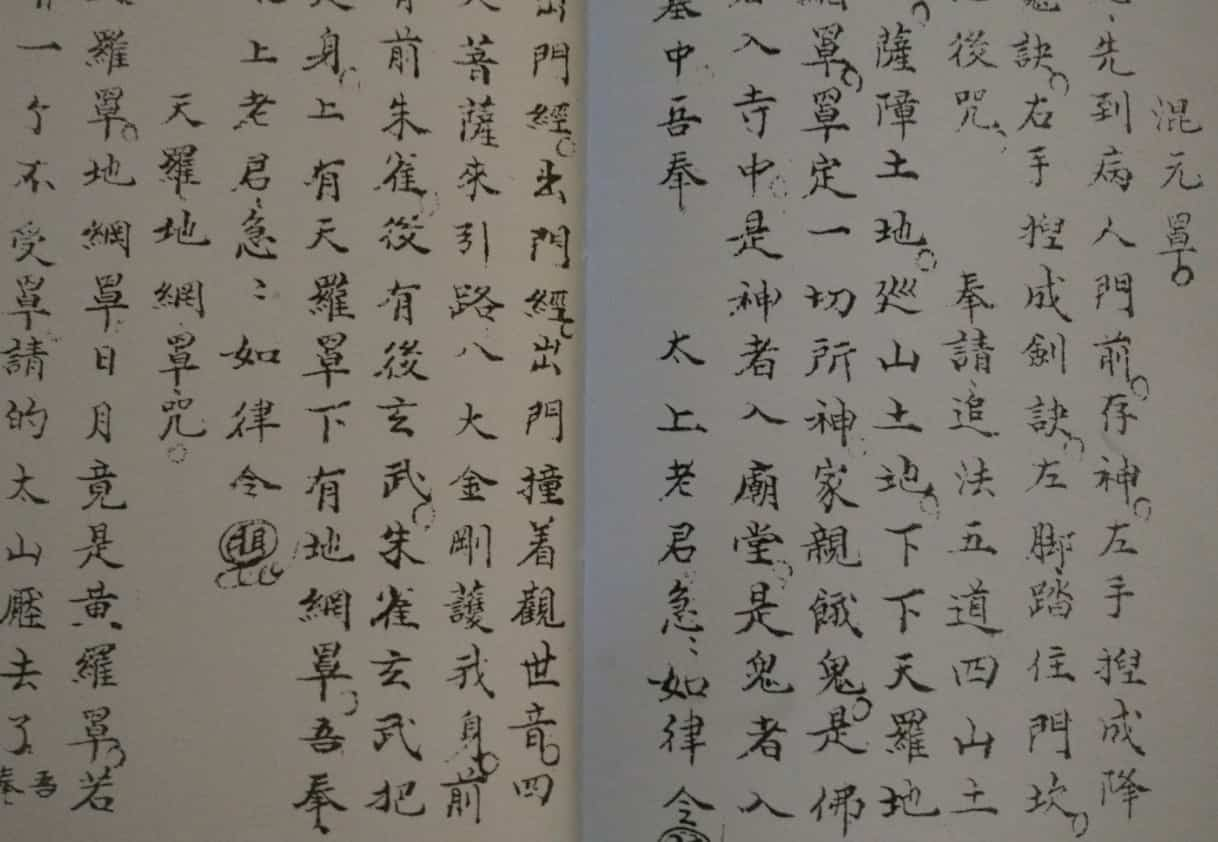 混元罩
先到病人門前存神左手揑成降
訣右手揑成劍訣左脚踏住門坎
後咒 奉請追法五道四山土
薩障土地廵山土地下下天羅地
罩罩定一切所神家親餓鬼是佛
入寺中是神者入廟堂是鬼者入
墓中吾奉 太上老君急〻如律令
門經出門經出門撞着觀世音四
菩薩來引路八大金剛護我身前
有前朱雀後有後玄武朱雀玄武把
身上有天羅罩下有地網罩吾奉
上老君急〻如律令
天羅地網罩咒
羅罩地網罩日月竟是黃羅罩若
一个不受罩請的太山壓去了吾奉